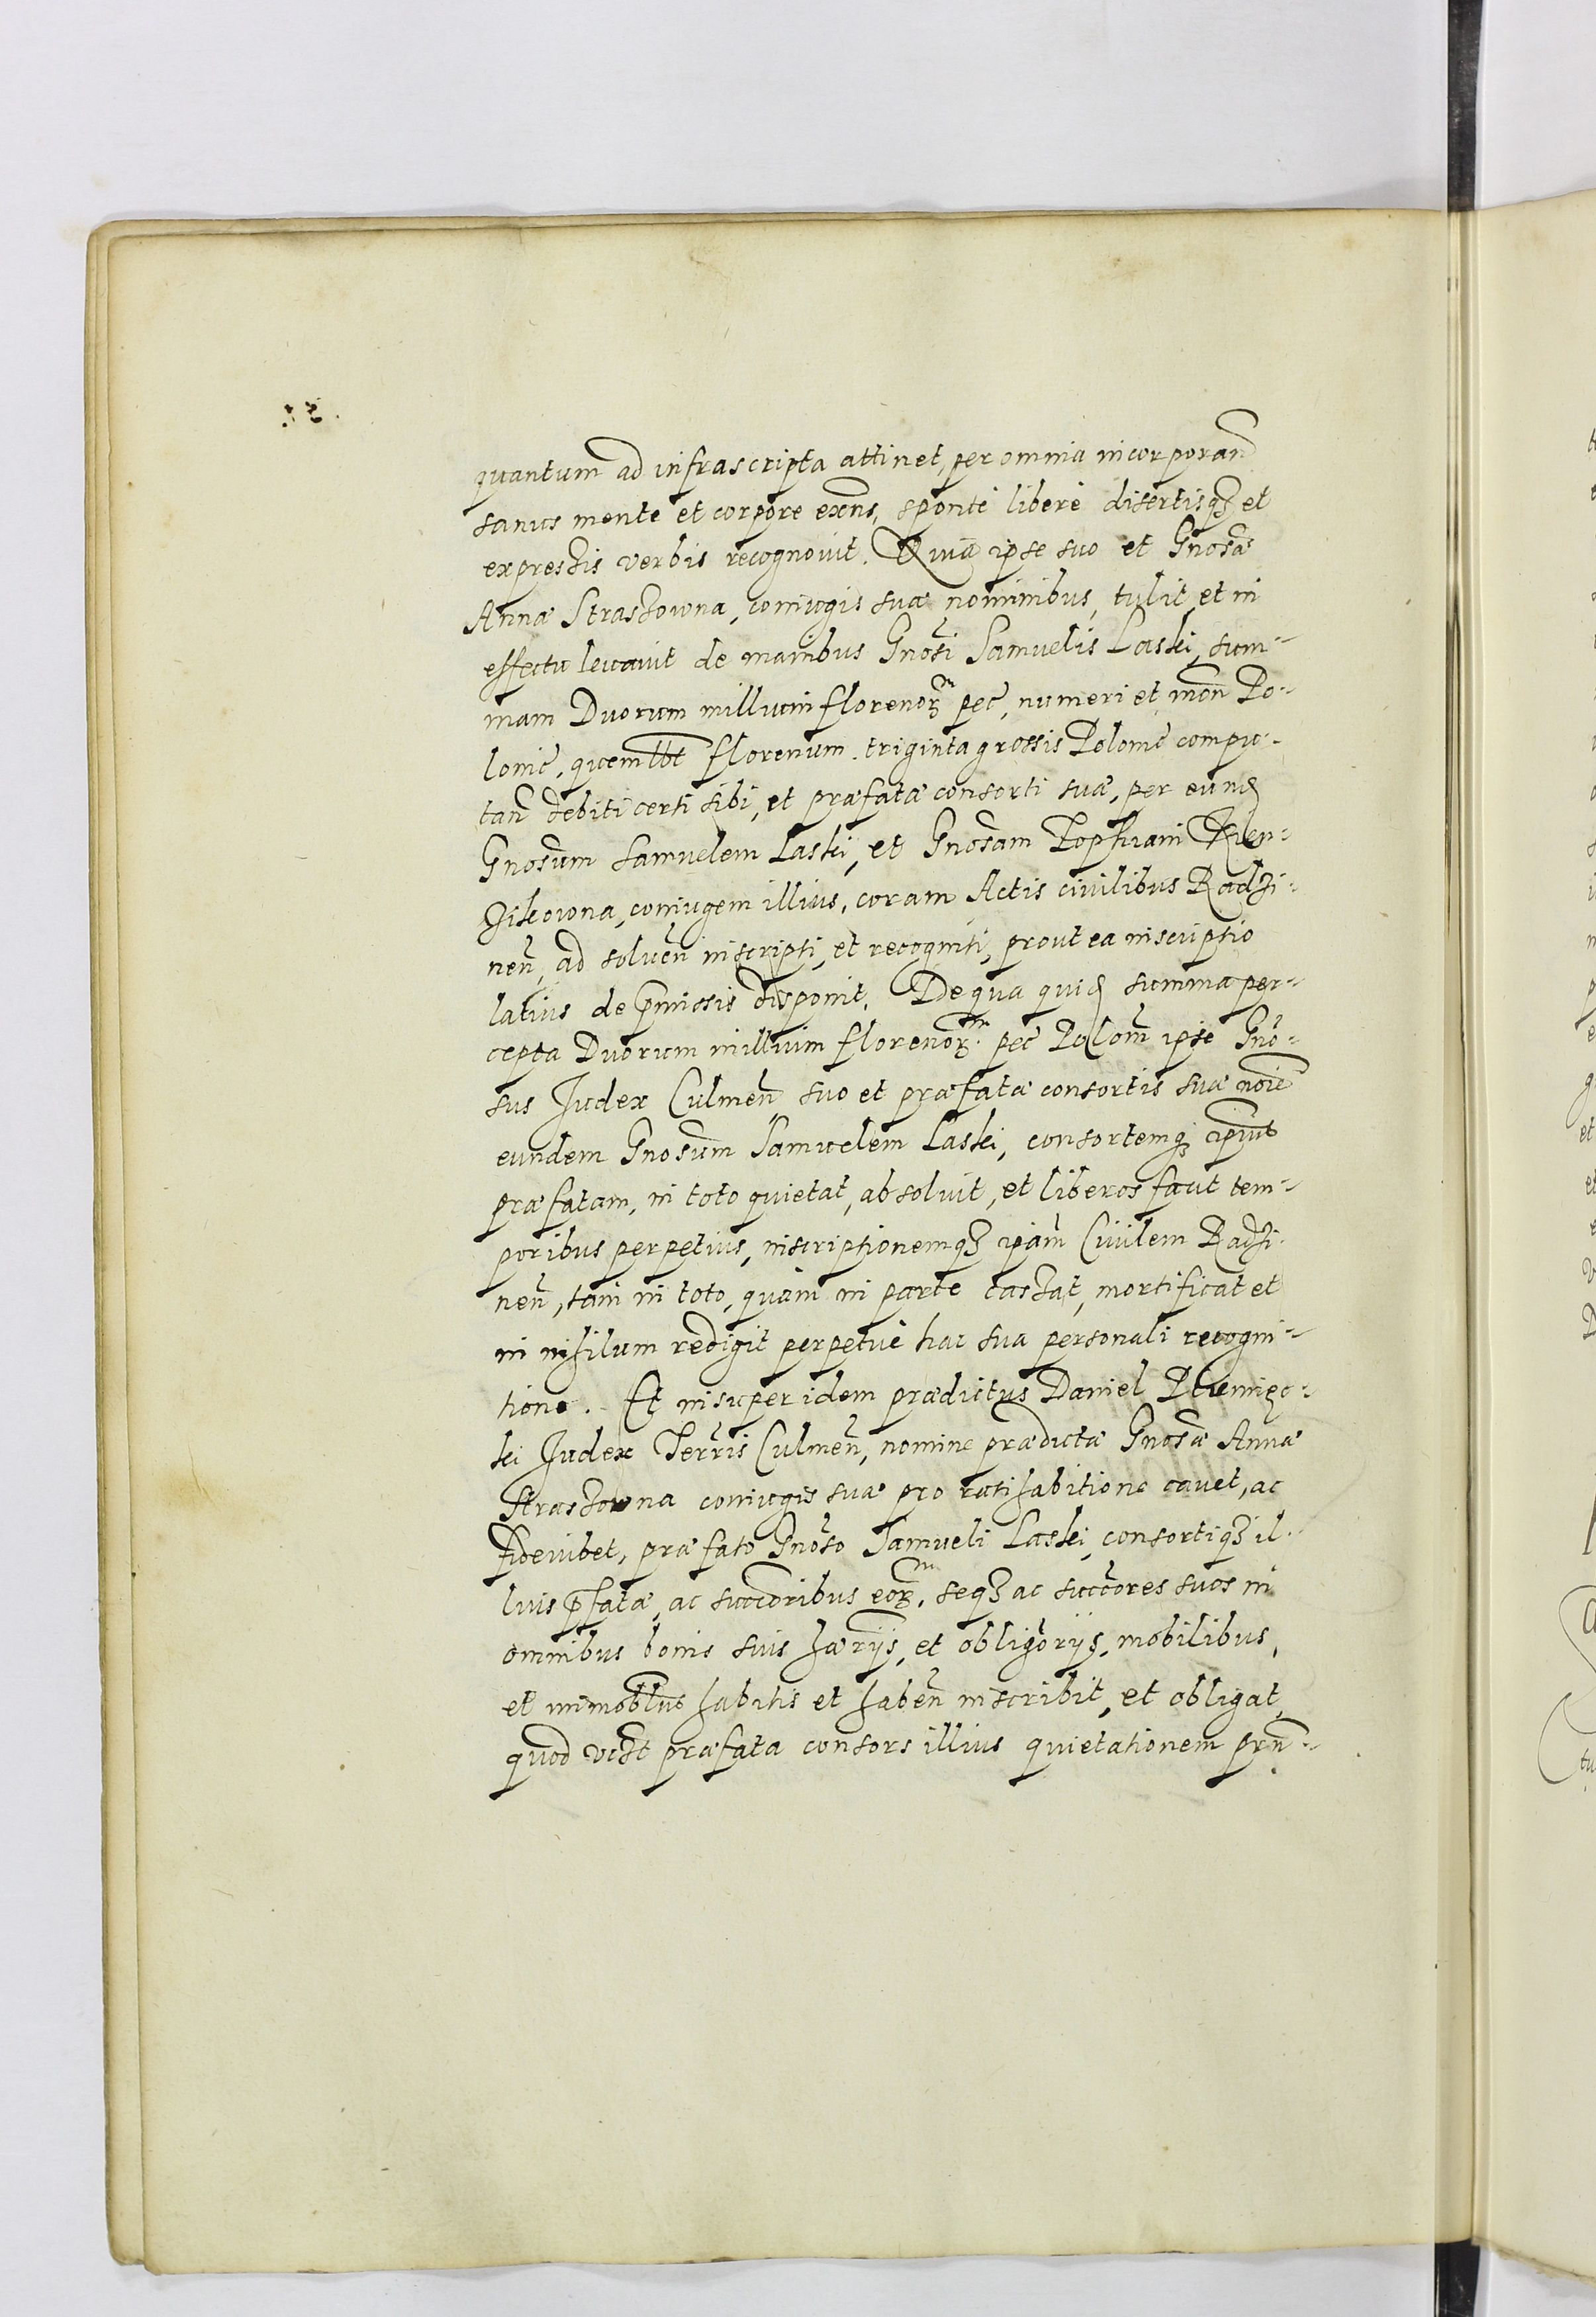 quantum ad infrascripta attinet, per omnia incorporan̄
sanus mente et corpore exn̄s, sponté liberè disertisq₃ et
expressis verbis recognovit. Quia ipse suo et Gnosæ
Annæ Straszowna, coniugis suæ nominibus, tulit, et in
effectu levavit de manibus Gnosi Samuelis Laski, sum-
mam Duorum millium florenorm̄ pec, numeri et mon̄ Po-
lonic, quemlbt florenum triginta grossis Polonic compu-
tan̄ debiti certi sibi, et præfatæ consorti suæ, per eund
Gnosum Samuelem Laski, et Gnosam Zophiam
coniugem illius, coram Actis civilibus Radzi-
nen̄, ad solven̄ inscripti, et recogniti, prout ea inscriptio
latius de præmissis disponit. De qua quid summa per-
cepta Duorum millium florenorm̄ pec Polon̄ ipse Gno-
sus Judex Culmen̄ suo et præfatæ consortis suæ noïe
eundem Gnosum Samuelem Laski, consortemq₃ ipius
præfatam, in toto quietat, absolvit, et liberos facit tem-
poribus perpetuis, inscriptionemq₃ ipam Civilem Radzi-
nen̄, tam in toto, quàm in parte cassat, mortificat et
in nihilum redigit perpetuè hac sua personali recogni-
tione. Et insuper idem prædictus Daniel Plemięc-
ki Judex Terrris Culmen̄, nomine prædictæ Gnosæ Annæ
Straszowna coniugis suæ pro ratihabitione cavet, ac
fideiubet, præfato Gnoso Samueli Laski, consortiq₃ il-
lius pfatæ, ac succoribus eorm̄, seq₃ ac succores suos in
omnibus bonis suis hæriis, et obligoriis, mobilibus,
et immoblus habitis et haben̄ inscribit, et obligat,
quod præfata consors illius quietationem prn̄-